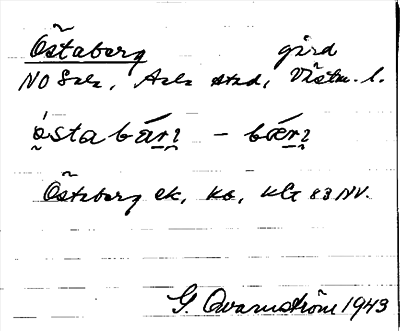 Östaberg gård
NO Sala, Sala stad, Västm. l.
östabär̥i - bær̥i
Östaberg ek, ka, kls 83 NV.
G. Qvarnström 1943